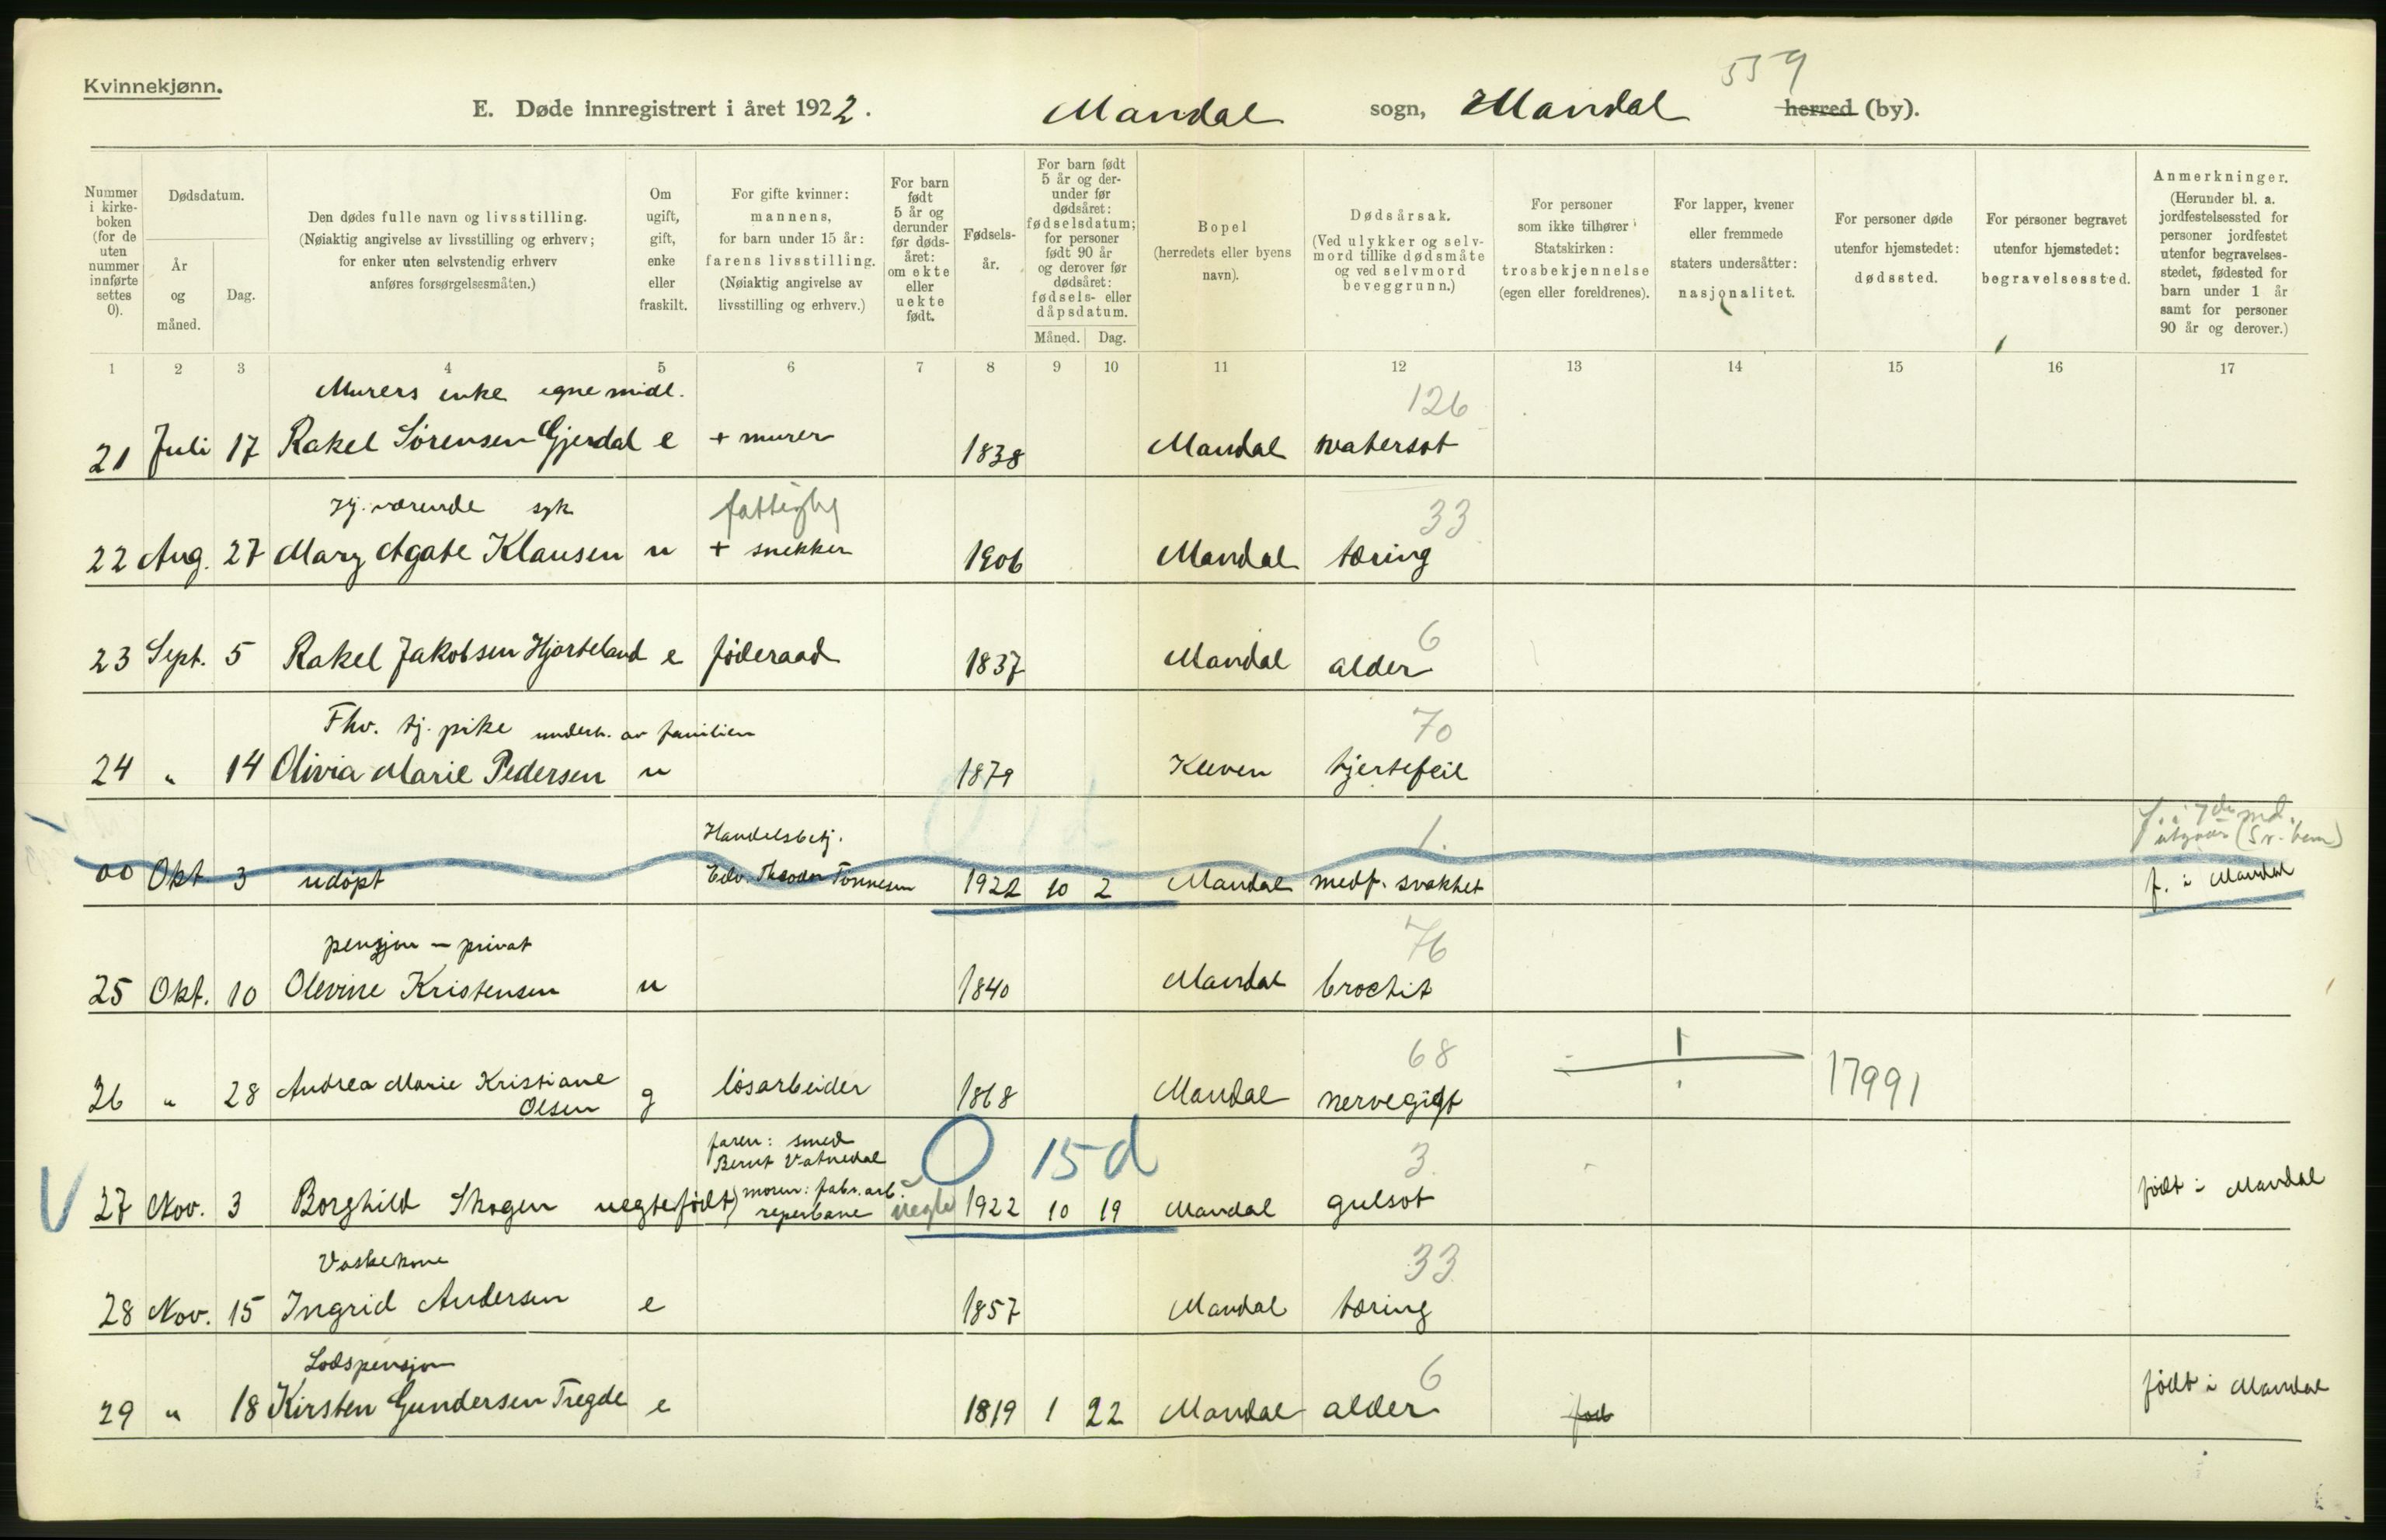 Kvinnekjønn.
559
E. Døde innregistrert i året 1922. Mandal sogn, Mandal herred (by).
Nummer i kirke-boken (for de uten nummer innførte settes 0).
Dødsdatum.
År og måned.
Dag.
Den dødes fulle navn og livsstilling. (Nøiaktig angivelse av livsstilling og erhverv; for enker uten selvstendig erhverv anføres forsørgelsesmåten.)
Om ugift, gift, enke eller fraskilt.
For gifte kvinner: mannens, for barn under 15 år: farens livsstilling. (Nøiaktig angivelse av livsstilling og erhverv.)
For barn født 5 år og derunder før døds-året: om ekte eller uekte født.
Fødsels-år.
For barn født 5 år og der-under før dødsåret: fødselsdatum; for personer født 90 år og derover før dødsåret: fødsels- eller dåpsdatum.
Måned. Dag.
Bopel (herredets eller byens navn).
Dødsårsak. (Ved ulykker og selv-mord tillike dødsmåte og ved selvmord beveggrunn.)
For personer som ikke tilhører Statskirken: trosbekjennelse (egen eller foreldrenes).
For lapper, kvener eller fremmede staters undersåtter: nasjonalitet.
For personer døde utenfor hjemstedet: dødssted.
For personer begravet utenfor hjemstedet: begravelsessted.
Anmerkninger. (Herunder bl. a. jordfestelsessted for personer jordfestet utenfor begravelses-stedet, fødested for barn under 1 år samt for personer 90 år og derover.)
1 2 3 4 5 6 7 8 9 10 11 12 13 14 15 16 17
Murers enke egne midl. 126
21 Juli 17 Rakel Sørensen Gjerdal e + murer 1838 Mandal vatersot
Hj. værende syk fattighj 33
22 Aug. 27 Mary Agate Klausen u + snekker 1906 Mandal tæring
6
23 Sept. 5 Rakel Jakobsen Hjorteland e føderaad 1837 Mandal alder
Fhv. tj. pike underh. av familien 70
24 " 14 Olivia Marie Pedersen u 1879 Kleven hjertefeil
Handelsbetj. 1. f. i 7de md.
utgaar
00 Okt. 3 udøpt Edv. Theodor Tønnesen 1922 10 2 Mandal medf. svakhet f. i Mandal
pensjon - privat 76
25 Okt. 10 Olevine Kristensen u 1840 Mandal brochit
68
26 " 28 Andrea Marie Kristiane Olsen g løsarbeider 1868 Mandal nervegigt 17991
faren: smed
Bernt Vatnedal 0 15 d 3.
27 Nov. 3 Borghild Skogen uegtefødt) moren: fabr. arb. reperbane uegte 1922 10 19 Mandal gulsot født i Mandal
Vaskekone 33
28 Nov. 15 Ingrid Andersen e 1857 Mandal tæring
Lodspensjon 6
29 " 18 Kirsten Gundersen Tregde e 1819 1 22 Mandal alder fød født i Mandal